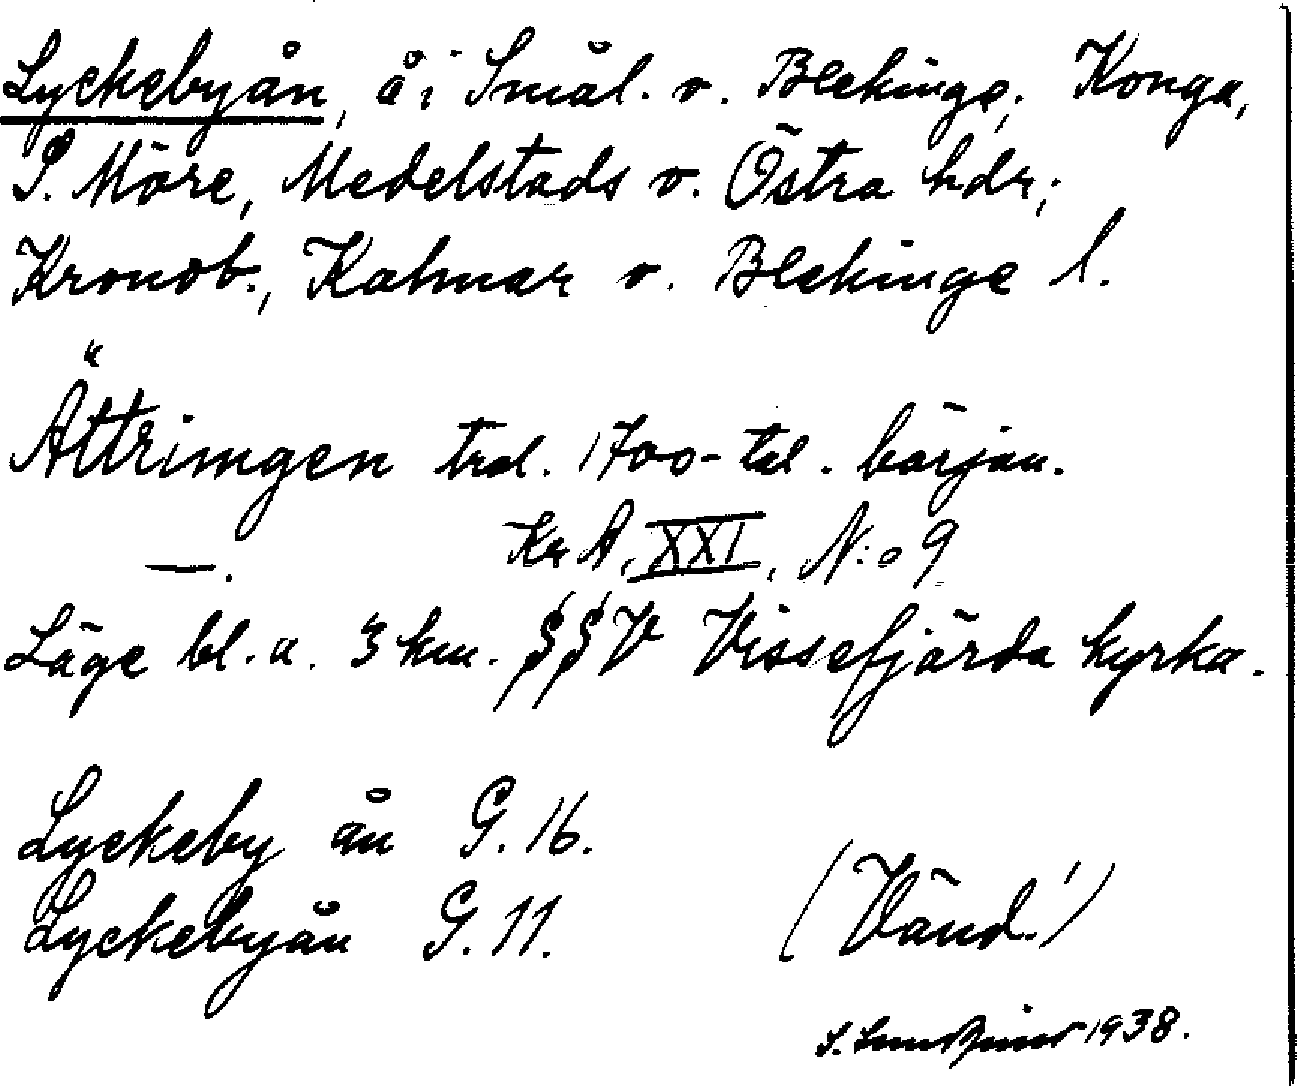 Lyckebyån, å i Smål. o. Blekinge; Konga,
S. Möre, Medelstads o. Östra hdr;
Kronob., Kalmar o. Blekinge l.
Ättrimgen trol. 1700-tal. början.
—. KrA, XXI, N:o 9
Läge bl. a. 3 km. §§V Vissefjärda kyrka.
Lyckeby ån G. 16.
Lyckebyån G. 11.
(Vänd!)
S. 1938.